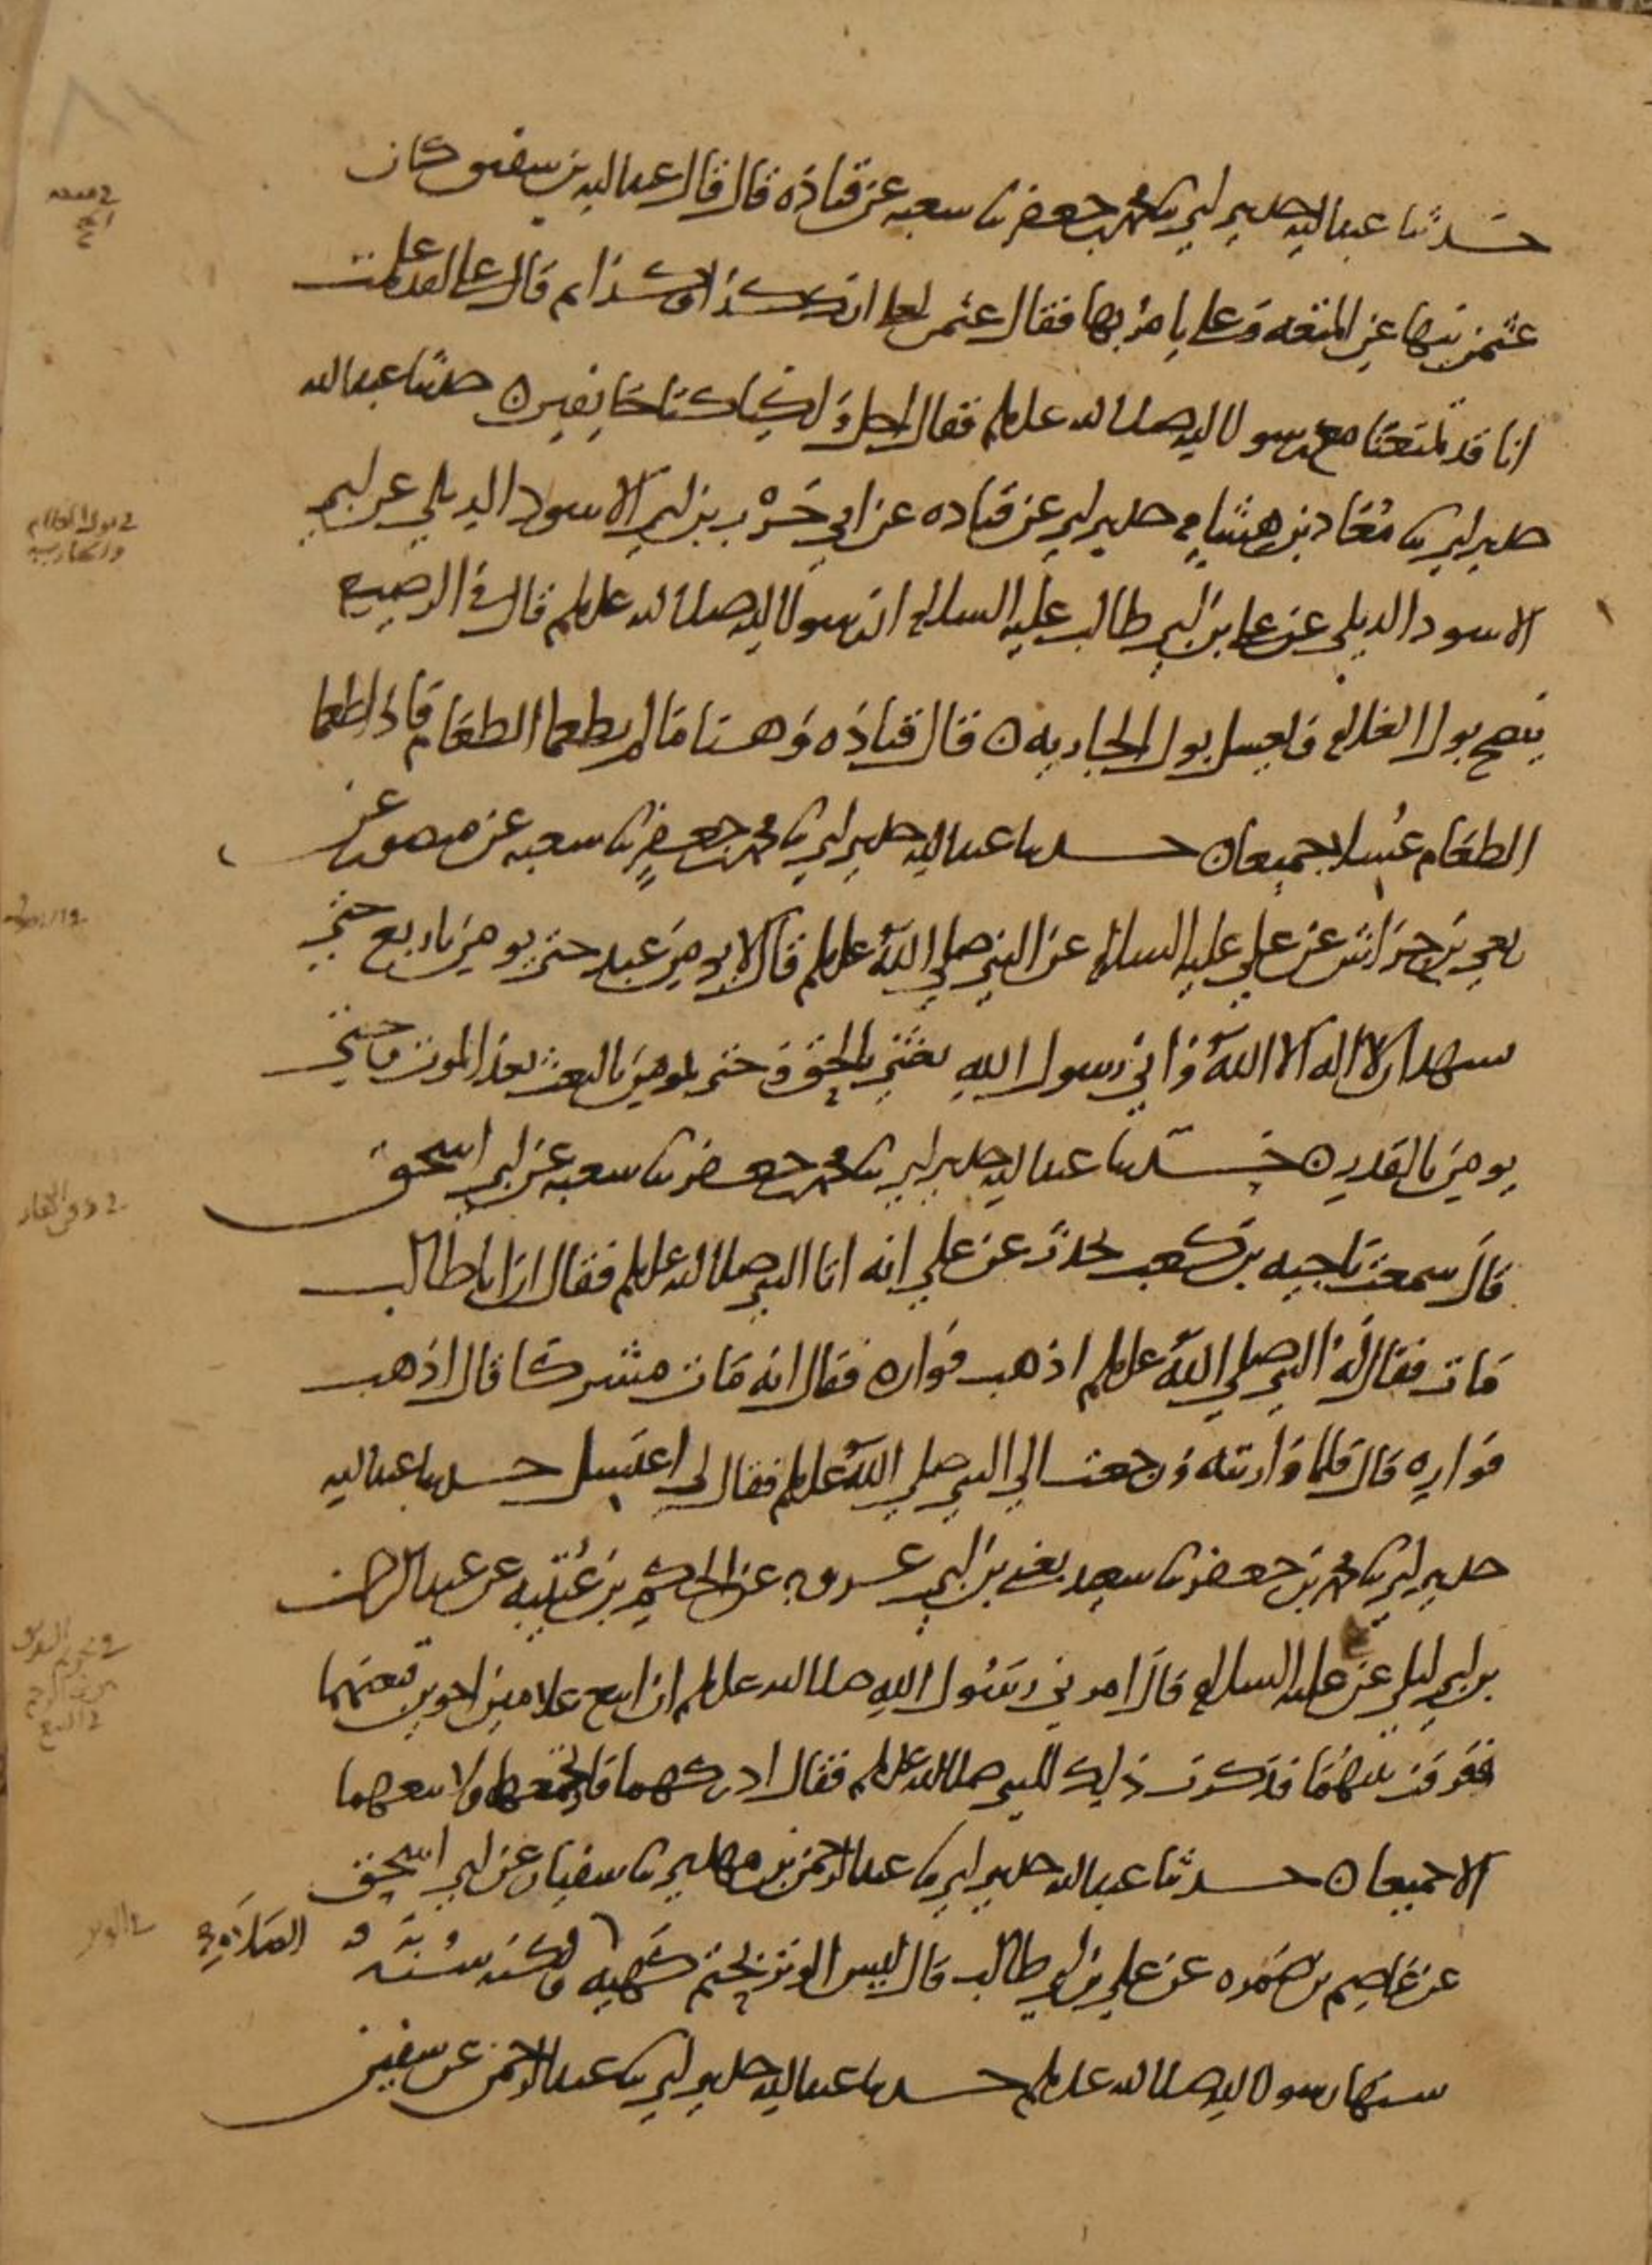 حدثنا عبد الله حدثني ابي ثنا محمد بن جعفر ثنا سعبه عن قتاده قال قال عبد الله بن سقيق كان
عثمن ينها عن المتعه وعلي يامر بها فقال عثمن لعلي انك كذا وكذا ثم قال علي لقد علمت
انا قد تمتعنا مع رسول الله صلى الله عليه وسلم فقال اجل ولكنا كنا خايفين ه حدثنا عبد الله
حدثني ابي ثنا معاد بن هشام حدثني ابي عن قتاده عن ابي حرب بن ابي الاسود الديلي عن ابي
الاسود الديلي عن علي بن ابي طالب عليه السلام ان رسول الله صلى الله عليه وسلم قال في الرضيع
ينضح بول الغلام ويغسل بول الجاريه ه قال قتاده وهذا ما لم يطعما الطعام فاذا طعما
الطعام غسلا جميعا ه حدثنا عبد الله حدثني ابي ثنا محمد بن جعفر ثنا سعبه عن منصور عن
ربعي بن حراش عن علي عليه السلام عن النبي صلي الله عليه وسلم قال لا يومن عبد حتى يومن باربع حتي
يسهد ان لا اله الا الله واني رسول الله بعثني بالحق وحتى يومن بالبعث بعد الموت وحتي
يومن بالقدر ه حدثنا عبد الله حدثني ابي ثنا محمد بن جعفر ثنا سعبه عن ابي اسحق
قال سمعت ناجيه بن كعب يحدث عن علي انه اتا النبي صلى الله عليه وسلم فقال ان ابا طالب
مات فقال له النبي صلي الله عليه وسلم اذهب فواره فقال انه مات مشركا قال اذهب
فواره قال فلما واريته رجعت الي النبي صلي الله عليه وسلم فقال لي اغتسل حدثنا عبد الله
حدثني ابي ثنا محمد بن جعفر ثنا سعيد يعني بن ابي عروبه عن الحكم بن عتيبه عن عبد الرحمن
بن ابي ليلي عن علي عليه السلام قال امرني رسول الله صلى الله عليه وسلم ان ابيع غلامين اخوين فبعتهما
ففرقت بينهما فذكرت ذلك للنبي صلى الله عليه وسلم فقال ادركهما فارتجعهما ولا تبعهما
الا جميعا ه حدثنا عبد الله حدثني ابي ثنا عبد الرحمن بن مهدي ثنا سفيان عن ابي اسحق
عن عاصم بن ضمره عن علي بن ابي طالب قال ليس الوتر بحتم كهيه الصلاه ولكنه سنه
سنها رسول الله صلى الله عليه وسلم حدثنا عبد الله حدثني ابي ثنا عبد الرحمن عن سفين